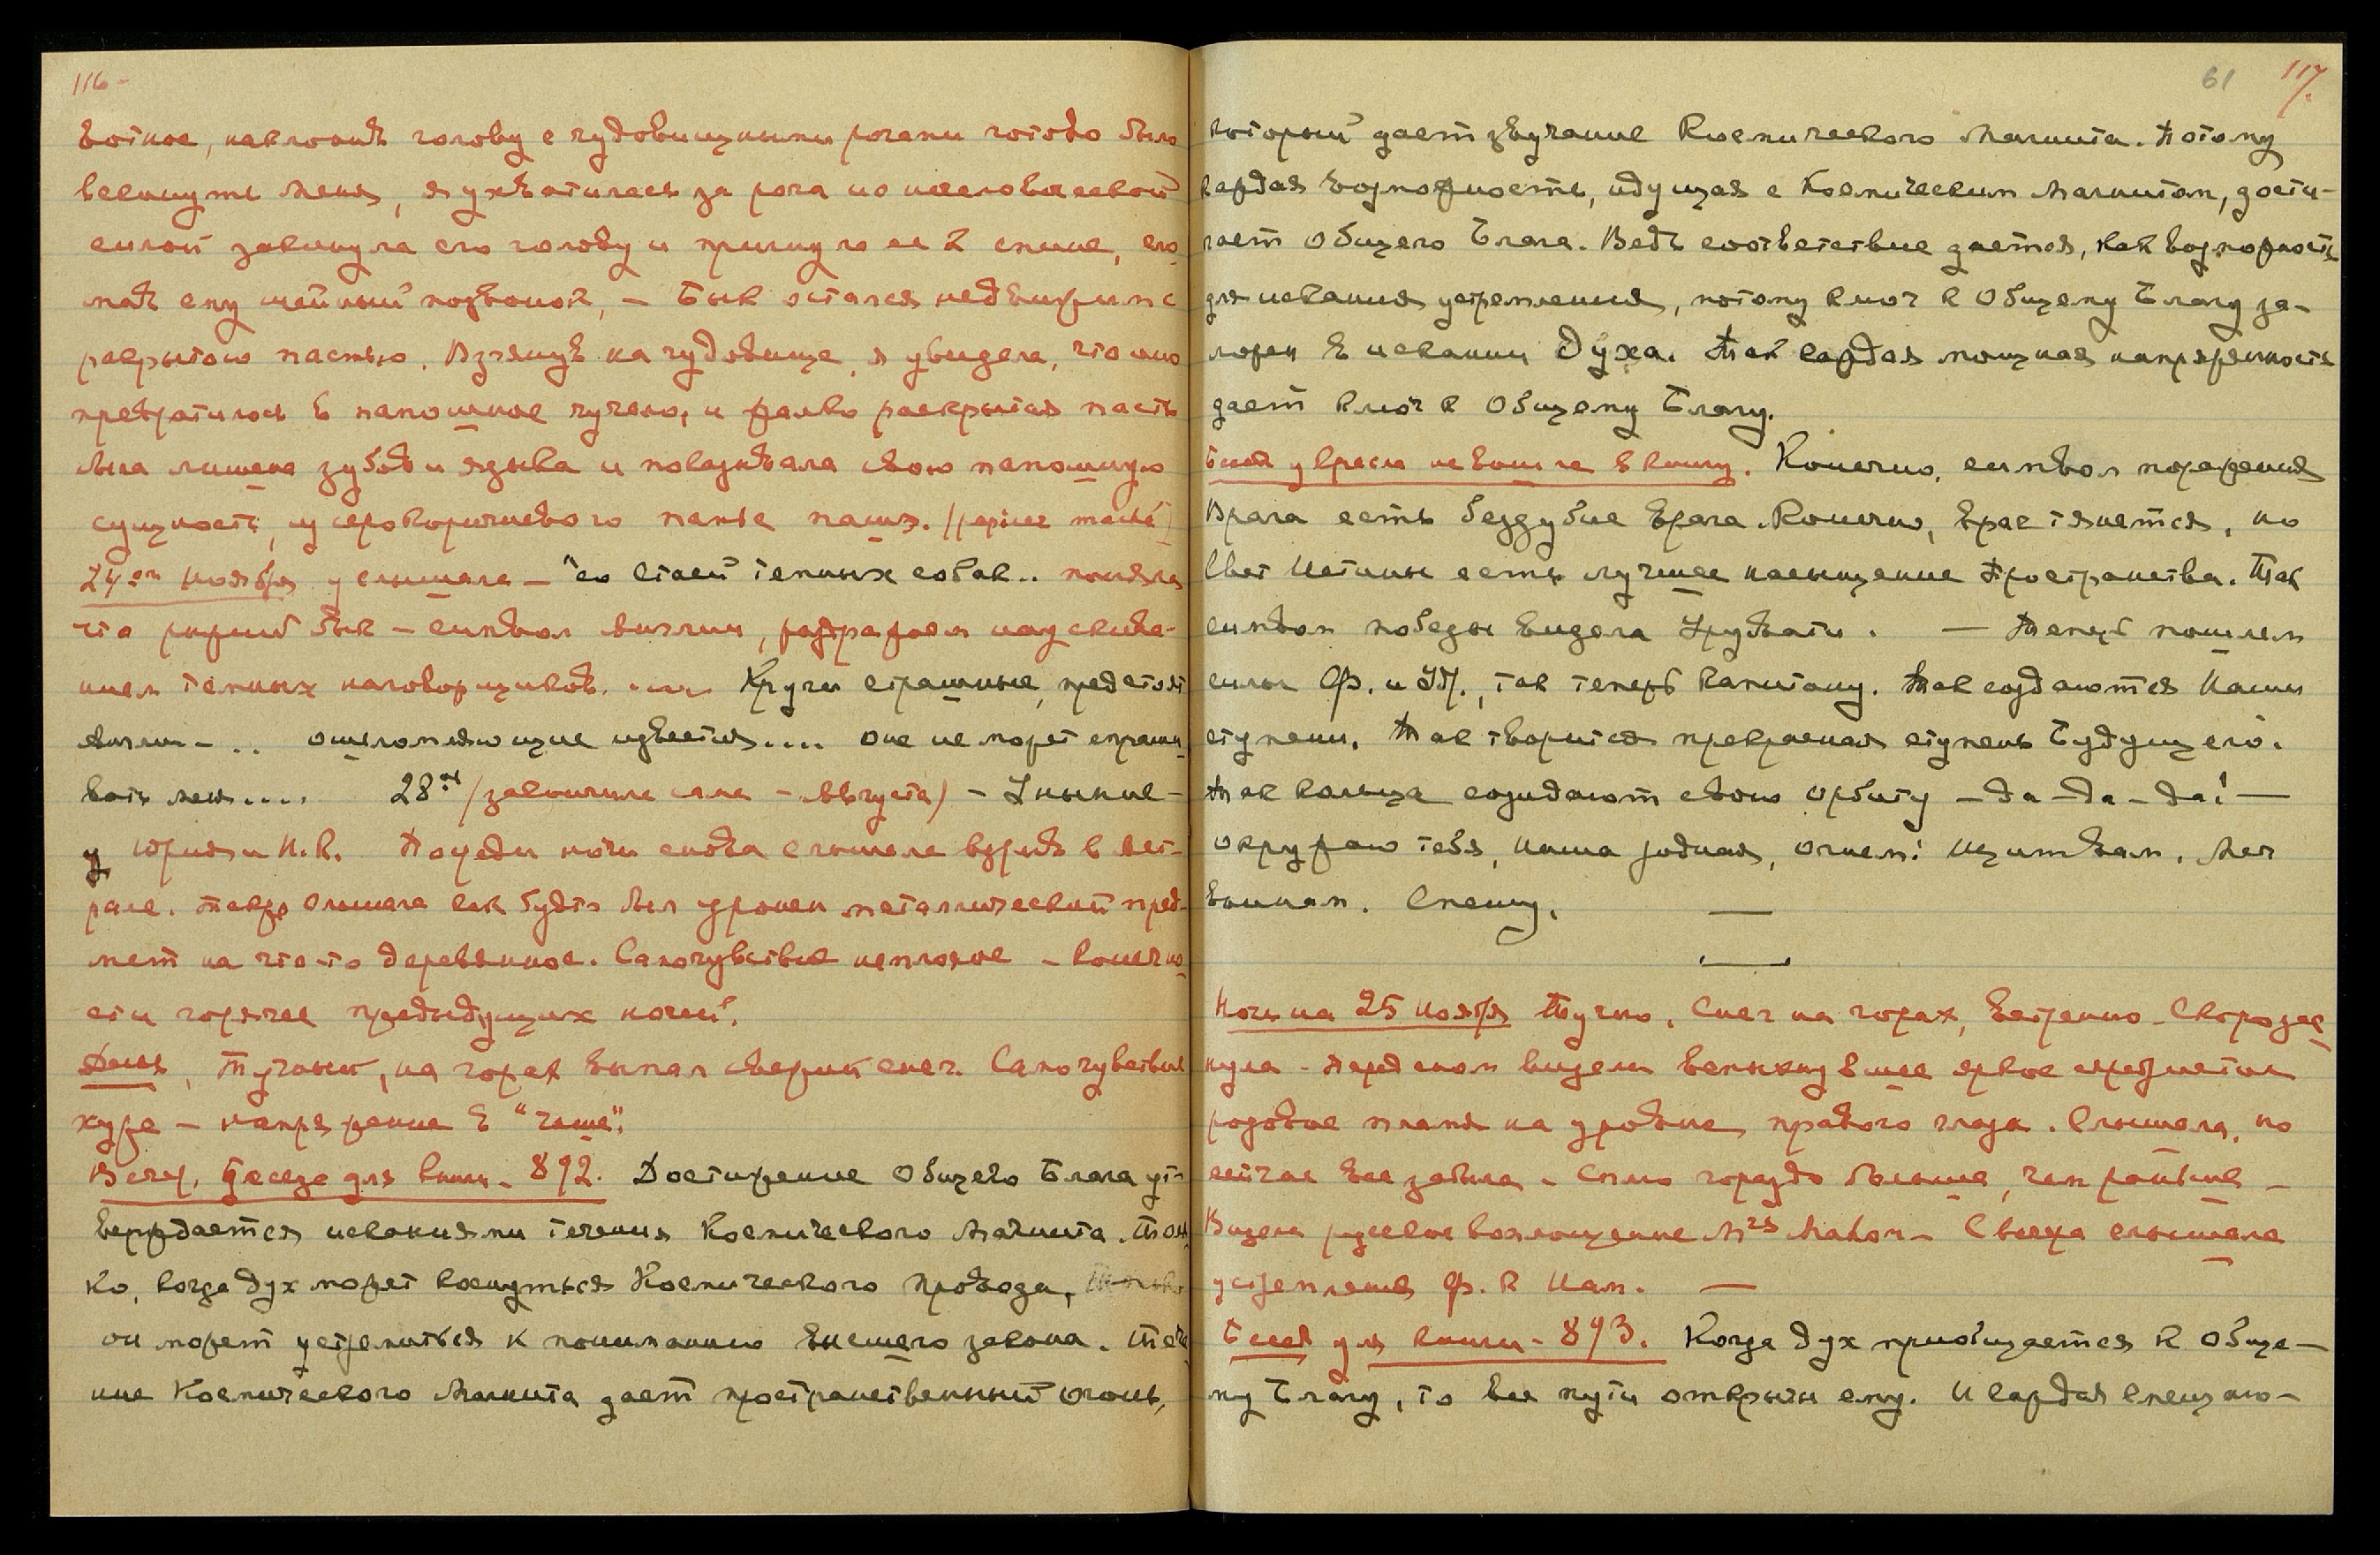 116-
вотное, наклонив голову с чудовищными рогами готово было
вскинуть меня, я ухватилась за рога и с нечеловеческой
силой закинула его голову и пригнула ее к спине, сло-
мав ему шейный позвонок, – Бык остался недвижим с
раскрытою пастью. Взглянув на чудовище, я увидела, что оно
превратилось в напошное чучело, и жалко раскрытая пасть
была лишена зубов и языка и показывала свою напошную
сущность, из серокоричневого папье маше. /papier maché/
24ое Ноября услышала – "со стаей темных собак.. поняла
что рыжий бык – символ Англии, раздражаем науськива-
нием темных наговорщиков. .... Кручи страшные, предстоят
Англии – .. ошеломляющие известия.... она не может спраши-
вать меня.... 28ое /закончила сама – Августа/ – Уныние –
у Юрия и Н.К. Посреди ночи снова слышала взрыв в аст-
рале. Также слышала как будто был уронен металлический пред-
мет на что-то деревянное. Самочувствие неплохое – конечно-
сти горячее предыдущих ночей.
День, Тучный, на горах выпал свежий снег. Самочувствие
хуже – напряжение в "чаше".
Веч. Беседа для книги – 892. Достижение Общего Блага ут-
верждается исканиями течения Космического Магнита. Толь-
ко, когда дух может коснуться Космического Провода,
он может устремиться к пониманию высшего закона. Тече-
ние Космического Магнита дает пространственный огонь,
61 117.
который дает звучание Космического Магнита. Потому
каждая возможность, идущая с Космическим Магнитом, дости-
гает Общего Блага. Ведь соответствие дается, как возможность
для искания устремления, потому ключ к Общему Благу за-
ложен в искании Духа. Так каждая мощная напряженность
дает ключ к Общему Благу.
Беседа у кресла не вошла в книгу. Конечно, символ поражения
Врага есть беззубие врага. Конечно, враг тянется, но
Свет Истины есть лучшее насыщение Пространства. Так
символ победы видела Урусвати. – Теперь пошлем
силы Ф. и Уд., так теперь капитану. Так создаются Наши
ступени. Так творится прекрасная ступень Будущего.
Так кольца созидают свою орбиту – да – да – да! –
окружаю тебя, Наша родная, огнем! Щитом вам. Меч
воинам. Спешу. —
—
Ночь на 25 Ноября Тучно, Снег на горах, ветренно – Скоро зас-
нула – Перед сном видела вспыхнувшее яркое серебристо
розовое пламя на уровне правого глаза. Слышала, но
сейчас все забыла – Сплю гораздо больше, чем раньше –
Видела русское воплощение М-ra Mahon – С верха слышала
устремления Ф. к Нам. —
Беседа для книги – 893. Когда дух приобщается к Обще-
му Благу, то все пути открыты ему. И каждая сближаю-